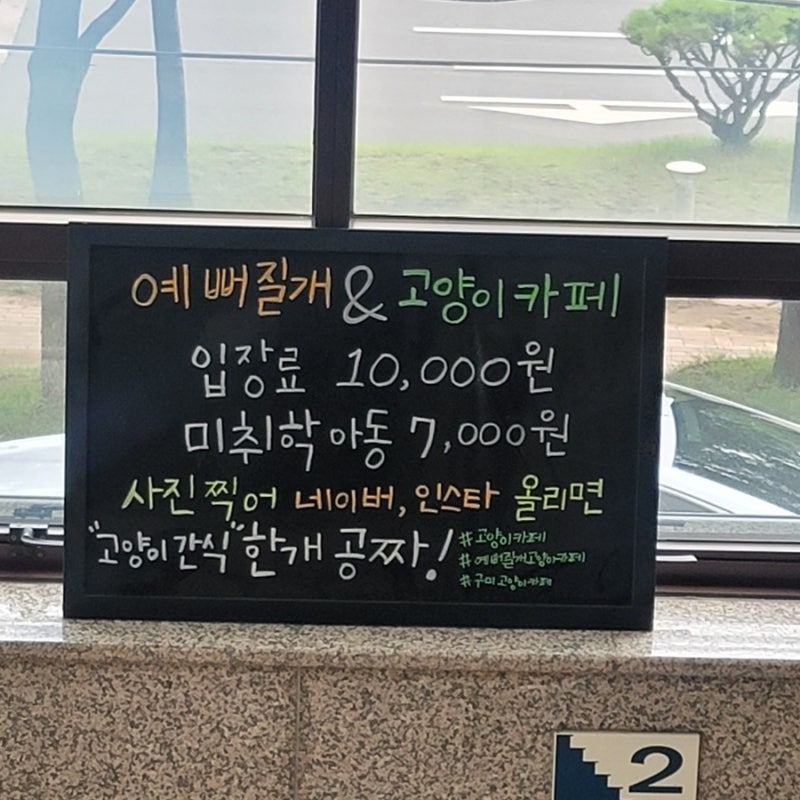 예뻐질개 & 고양이카페
입장료 10,000원
미취학아동 7,000원
사진찍어 네이버, 인스타 올리면
"고양이간식" 한개 공짜!
#고양이카페
#예뻐질개고양이카페
#구미고양이카페
2